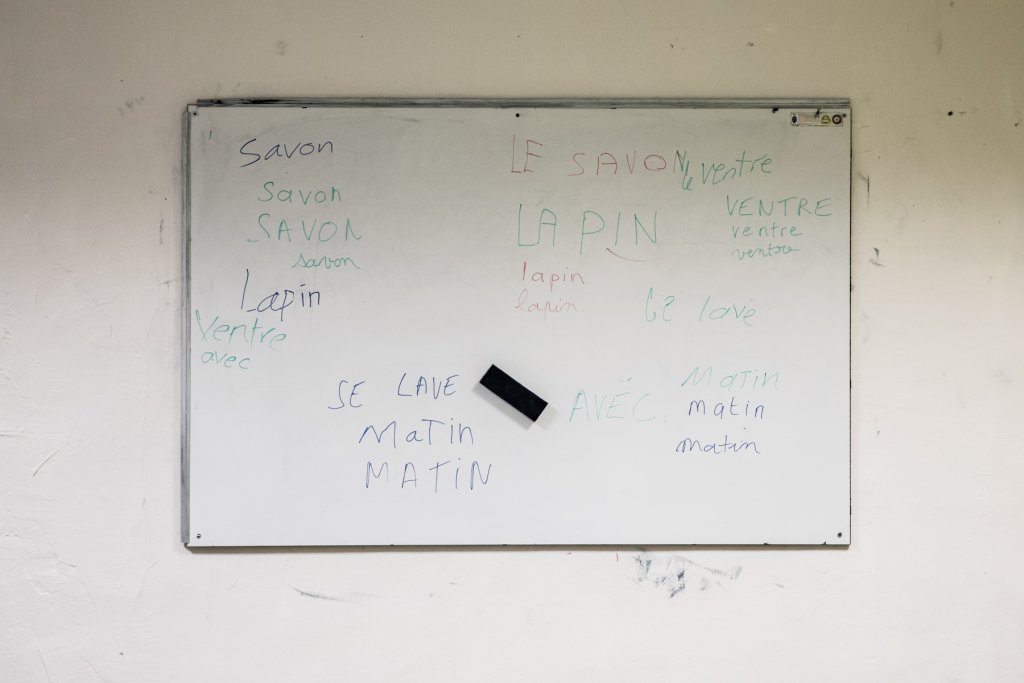 Savon
Savon
SAVON
savon
Lapin
Ventre
avec
LE SAVON
le ventre
VENTRE
ventre
ventre
LAPIN
lapin
lapin
lave
SE LAVE
MaTin
MATiN
AVËC
MaTiN
matin
matin